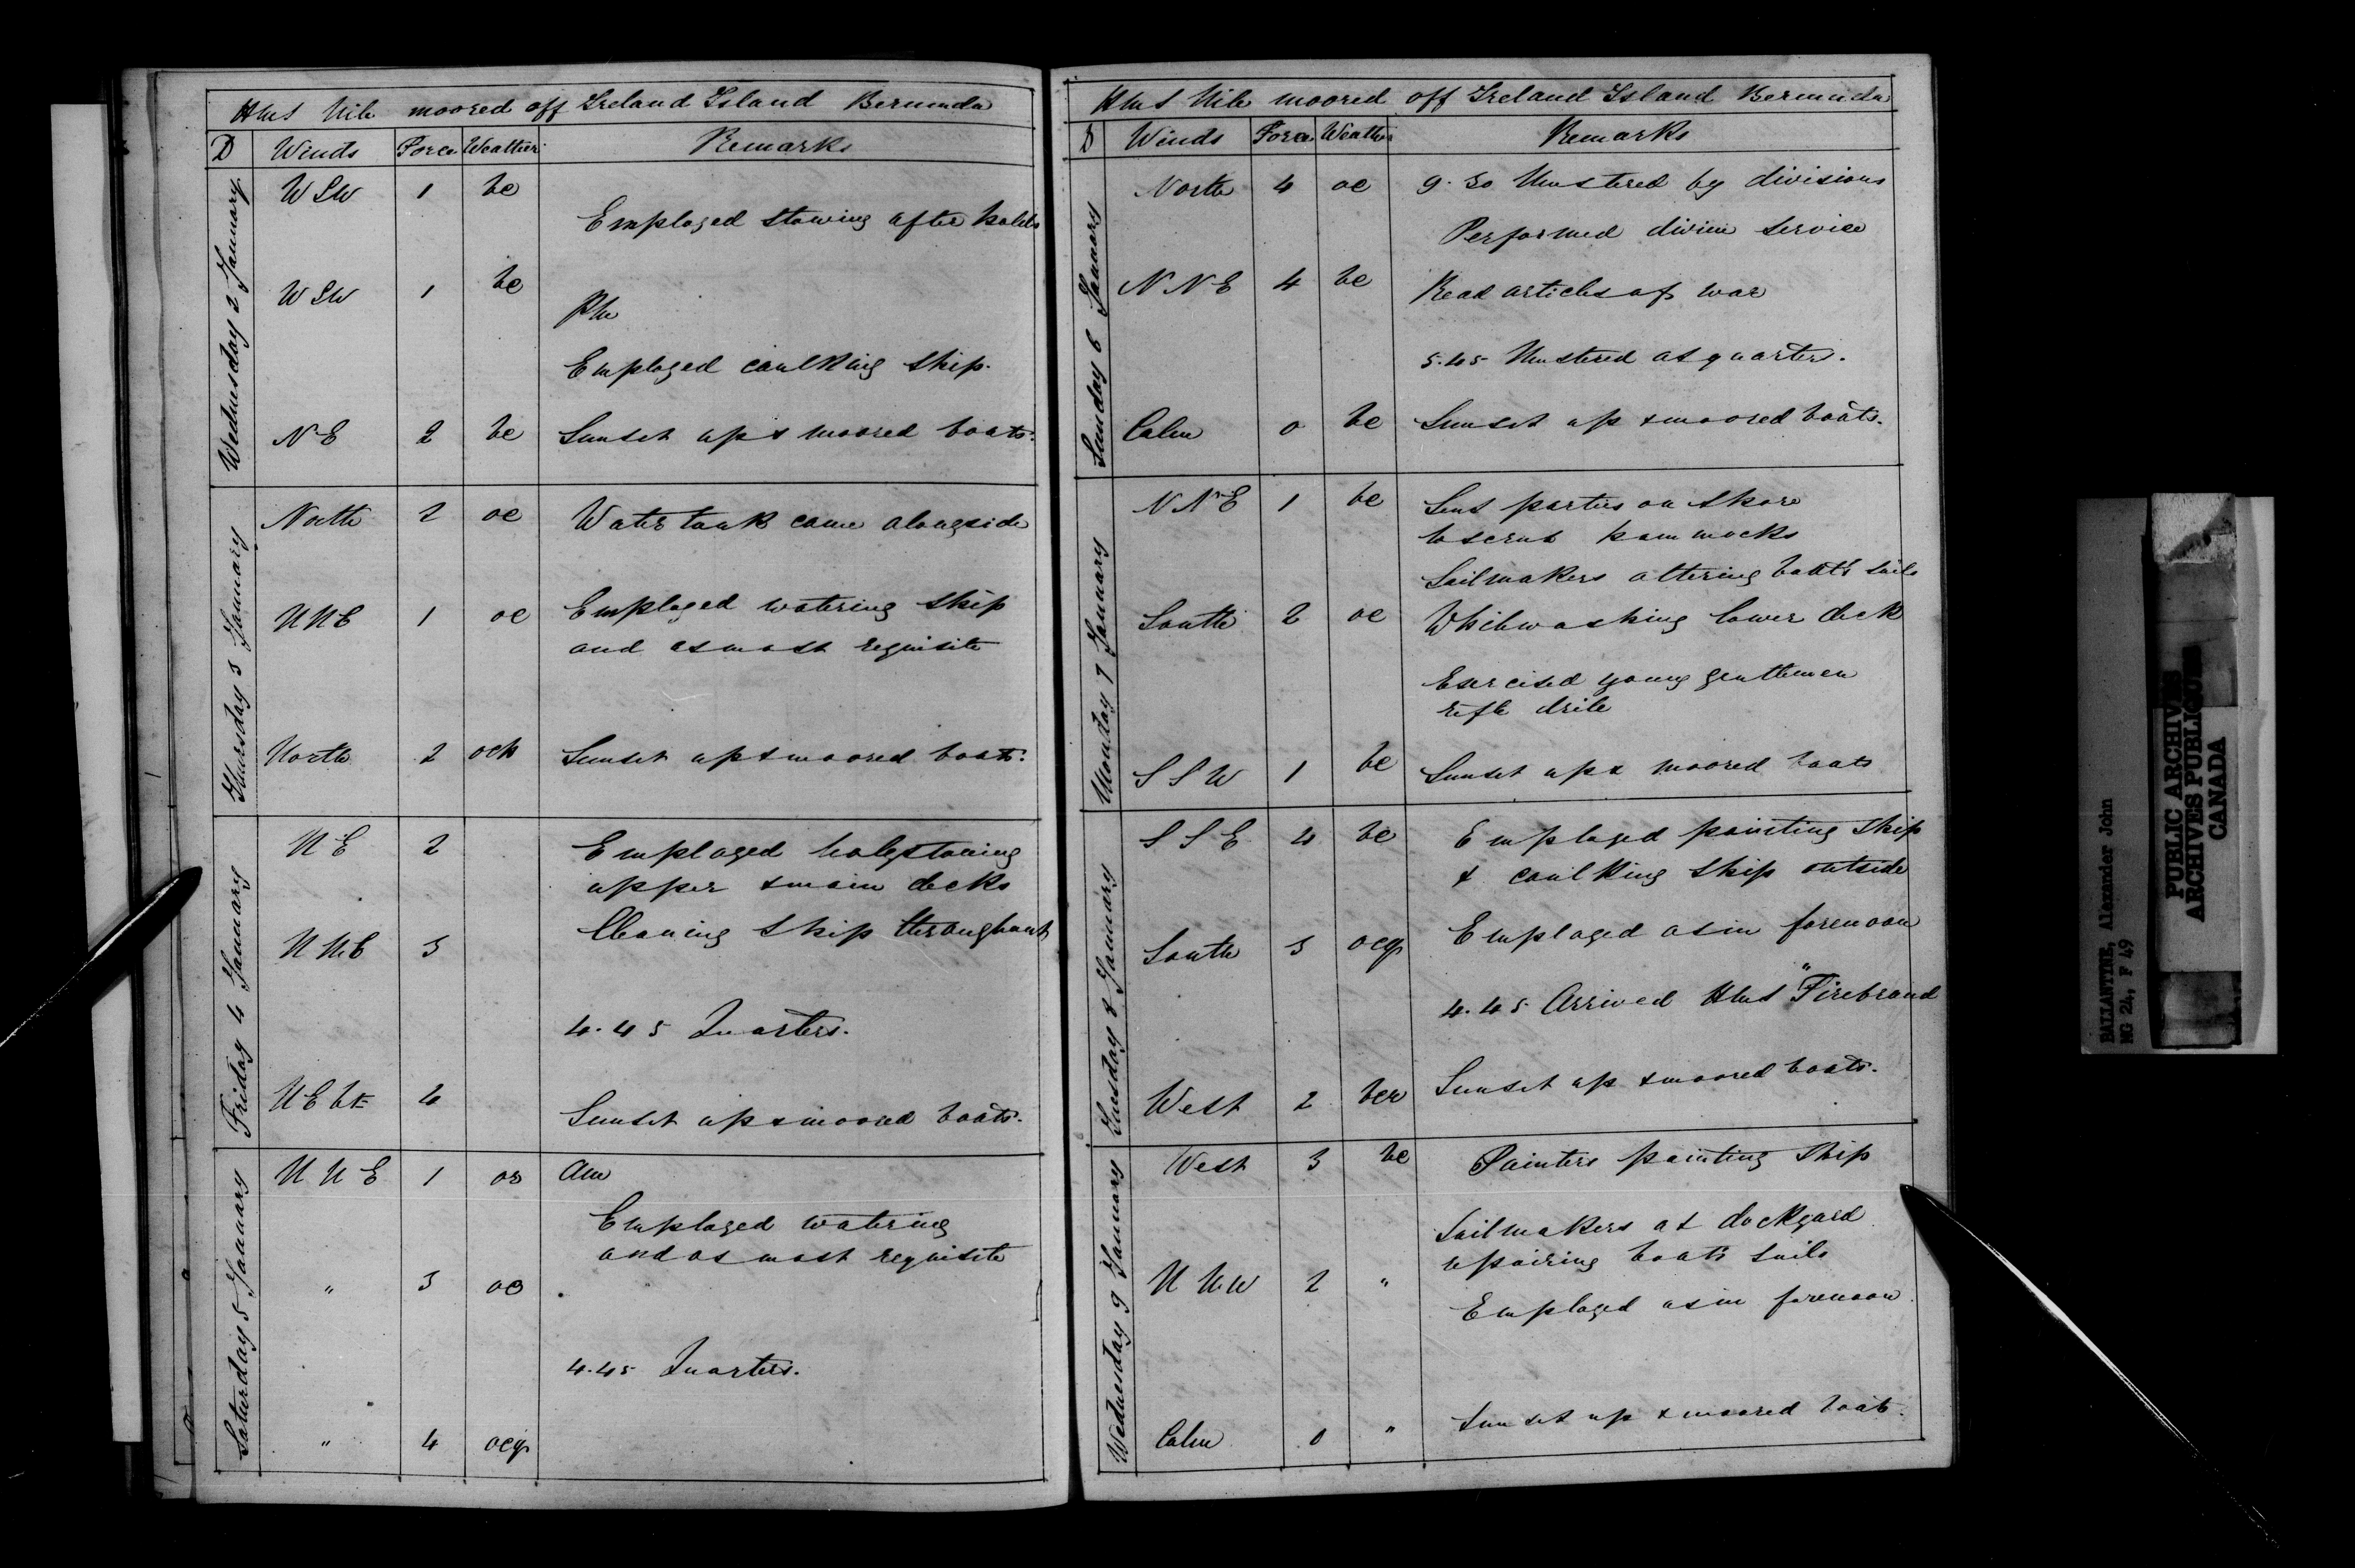 HMS Nile moored off Ireland Island Bermuda
D Winds Force Weather Remarks
Wednesday 2 January
WSW 1 bc
Employed stowing after holds
WSW 1 bc
PM
Employed caulking ship.
NE 2 bc Sunset up & moored boats.
Thursday 3 January
North 2 oc Water tank came alongside
NNE 1 oc Employed watering ship
and as most requisite
North 2 och Sunset up & moored boats.
Friday 4 January
NE 2 Employed holystoning
upper & main decks
NNE 3 Cleaning ship throughout
4.45 Quarters.
NEbE 4
Sunset up & moored boats.
Saturday 5 January
NNE 1 os AM
Employed watering
and as most requisite
" 3 oc
4.45 Quarters.
" 4 ocq
HMS Nile moored off Ireland Island Bermuda
D Winds Force Weather Remarks
Sunday 6 January
North 4 oc 9.30 Mustered by divisions
Performed divine service
NNE 4 bc Read articles of war
5.45 Mustered at quarters.
Calm 0 bc Sunset up & moored boats.
Monday 7 January
NNE 1 bc Sent parties on shore
to scrub hammocks
Sailmakers altering boat's sails
South 2 oc Whitewashing lower deck
Exercised young gentlemen
rifle drill
SSW 1 bc Sunset up & moored boats
Tuesday 8 January
SSE 4 bc Employed painting ship
& caulking ship outside
South 3 ocq Employed as in forenoon
4.45 Arrived HMS "Firebrand
West 2 bcr Sunset up & moored boats.
Wednesday 9 January
West 3 bc Painters painting ship
Sailmakers at dockyard
repairing boat's sails
NNW 2 "
Employed as in forenoon
Calm 0 " Sunset up & moored boats.
BALLANTINE, Alexander John
MG 24, F 49
PUBLIC ARCHIVES
ARCHIVES PUBLIQUES
CANADA